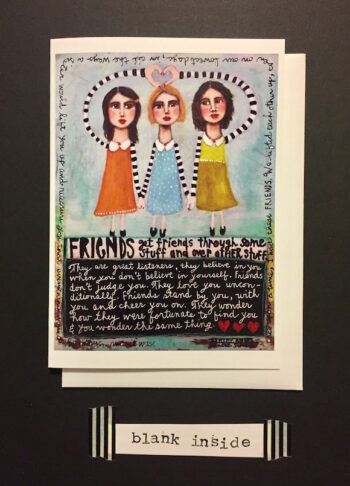 on our lowest days, in all the ways a
sister would lift you up and
these FRIENDS. We lifted each other up,
FRIENDS get friends through some
stuff and over other stuff.
They are great listeners, they believe in you
when you don't believe in yourself. Friends
don't judge you. They love you uncon-
ditionally. Friends stand by you, with
you and cheer you on. They wonder
how they were fortunate to find you
& you wonder the same thing
blank inside